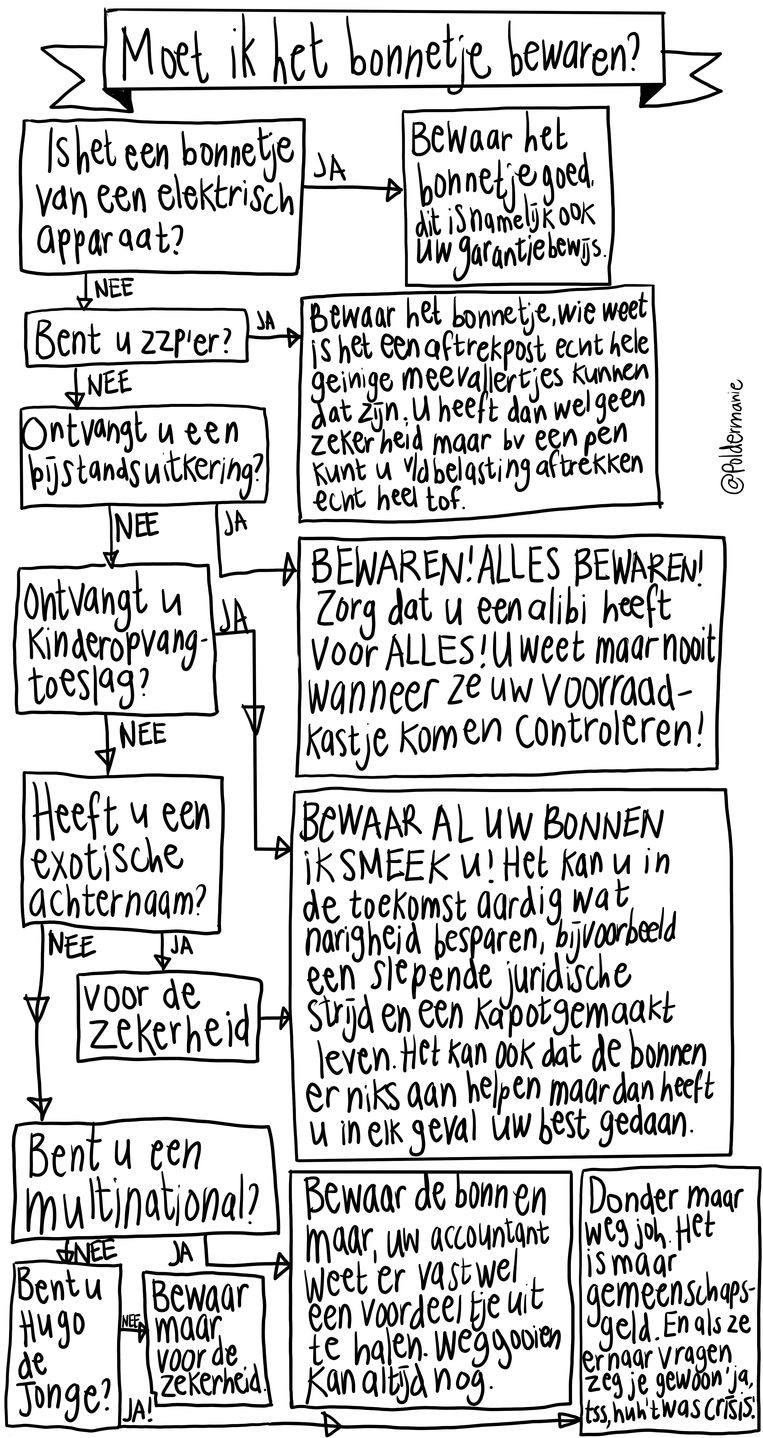 Moet ik het bonnetje bewaren?
Is het een bonnetje
van een elektrisch
apparaat?
JA
Bewaar het
bonnetje goed,
dit is namelijk ook
uw garantiebewijs.
NEE
Bent u zzp'er?
JA
Bewaar het bonnetje, wie weet
is het een aftrekpost echt hele
geinige meevallertjes kunnen
dat zijn. U heeft dan wel geen
zekerheid maar bv een pen
kunt u v/d belasting aftrekken
echt heel tof.
@Poldermanie
NEE
Ontvangt u een
bijstandsuitkering?
NEE
JA
BEWAREN! ALLES BEWAREN!
Zorg dat u een alibi heeft
voor ALLES! U weet maar nooit
wanneer ze uw voorraad-
kastje komen controleren!
Ontvangt u
kinderopvang-
toeslag?
JA
NEE
BEWAAR AL UW BONNEN
IK SMEEK U! Het kan u in
de toekomst aardig wat
narigheid besparen, bijvoorbeeld
een slepende juridische
strijd en een kapotgemaakt
leven. Het kan ook dat de bonnen
er niks aan helpen maar dan heeft
u in elk geval uw best gedaan.
Heeft u een
exotische
achternaam?
NEE
JA
voor de
zekerheid
Bent u een
multinational?
NEE
JA
Bewaar de bonnen
maar, uw accountant
weet er vast wel
een voordeeltje uit
te halen. Weggooien
kan altijd nog.
Bent u
Hugo
de
Jonge?
NEE
Bewaar
maar
voor de
zekerheid.
JA!
Donder maar
weg joh. Het
is maar
gemeenschaps-
geld. En als ze
ernaar vragen
zeg je gewoon 'ja,
tss, huh 't was crisis'.